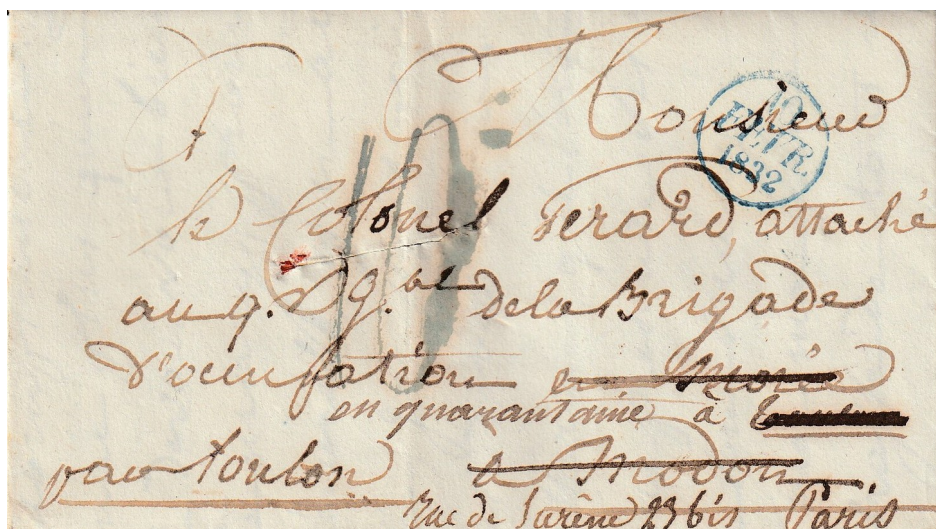 Monsieur
le Colonel Ferard, attaché
au q. G.al de la Brigade
d'occupation en Morée
en quarantaine à
par toulon à Modon
rue de Surène 23 bis Paris
10
FEVR.
1832